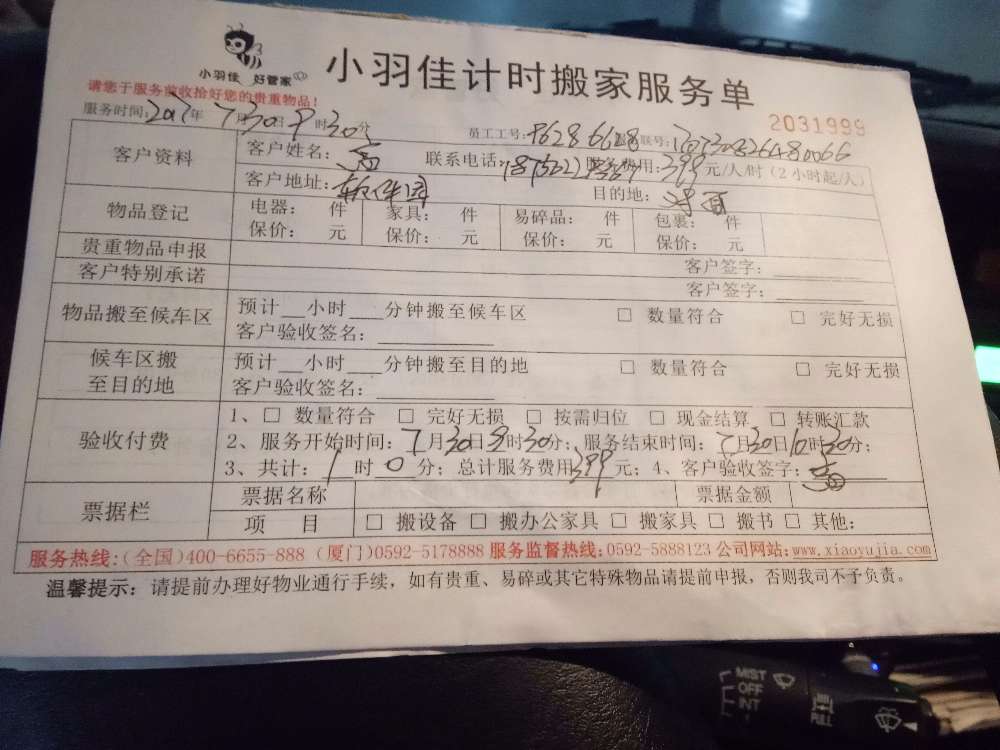 小羽佳 好管家
小羽佳计时搬家服务单
请您于服务前收拾好您的贵重物品！
2031999
服务时间：2017年7月30日9时30分 员工工号： 联号：
客户资料 客户姓名：高 联系电话： 服务费用：399元/人/时（2小时起/人）
客户地址：软件园 目的地：
物品登记 电器： 件 家具： 件 易碎品： 件 包裹： 件
保价： 元 保价： 元 保价： 元 保价： 元
贵重物品申报 客户签字：
客户特别承诺 客户签字：
物品搬至候车区 预计__小时___分钟搬至候车区 □ 数量符合 □ 完好无损
客户验收签名：
候车区搬至目的地 预计__小时___分钟搬至目的地 □ 数量符合 □ 完好无损
客户验收签名：
验收付费 1、□ 数量符合 □ 完好无损 □ 按需归位 □ 现金结算 □ 转账汇款
2、服务开始时间：7月30日9时30分；服务结束时间：7月30日10时30分；
3、共计：1时0分；总计服务费用399元；4、客户验收签字：高
票据栏 票据名称 票据金额
项 目 □ 搬设备 □ 搬办公家具 □ 搬家具 □ 搬书 □ 其他：
服务热线：(全国)400-6655-888 (厦门)0592-5178888 服务监督热线：0592-5888123 公司网站：www.xiaoyujia.com
温馨提示：请提前办理好物业通行手续，如有贵重、易碎或其它特殊物品请提前申报，否则我司不予负责。
MIST
OFF
INT
PULL